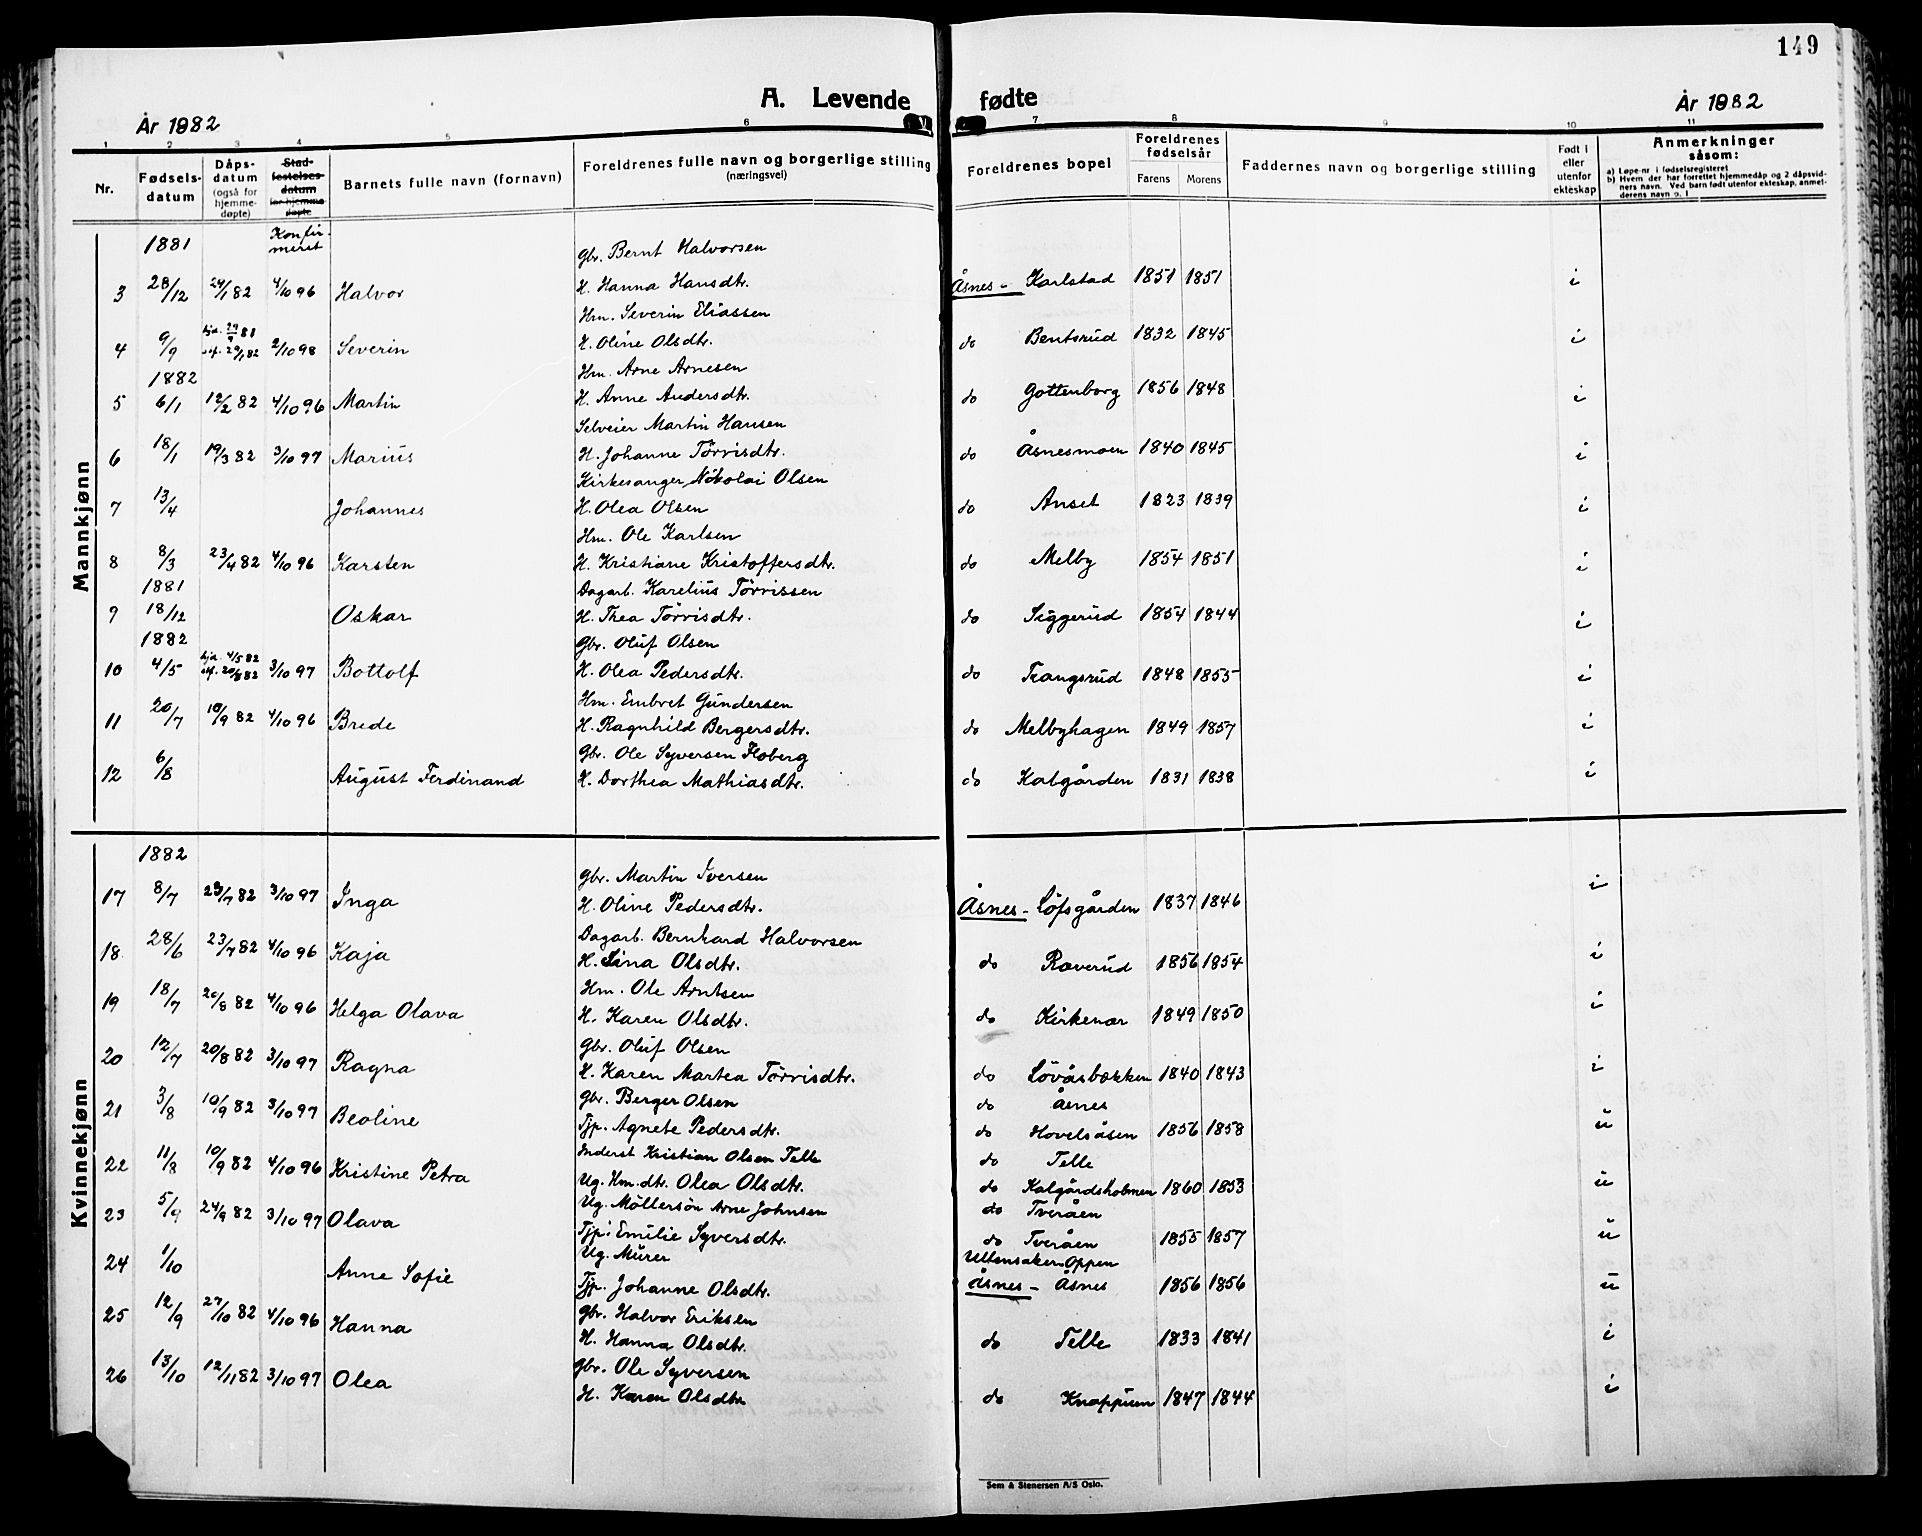 149
A. Levende fødte
År 1882
År 1882
1 2 3 4 5 6 7 8 9 10 11
Nr.
Fødsels-
datum
Dåps-
datum
(også for
hjemme-
døpte)
Stad-
festelses-
datum
for hjemme-
døpte
Barnets fulle navn (fornavn)
Foreldrenes fulle navn og borgerlige stilling
(næringsvei)
Foreldrenes bopel
Foreldrenes
fødselsår
Farens Morens
Faddernes navn og borgerlige stilling
Født i
eller
utenfor
ekteskap
Anmerkninger
såsom:
a) Løpe-nr i fødselsregisteret
b) Hvem der har forrettet hjemmedåp og 2 dåpsvid-
ners navn. Ved barn født utenfor ekteskap, anmel-
derens navn o. l
Mannkjønn
1881 Konfir-
meret
Gbr. Bernt Halvorsen
3 28/12 24/1 82 4/10 96 Halvor H. Hanna Hansdtr. Åsnes - Karlstad 1851 1851 i
Hm. Severin Eliassen
4 9/9 hjd. 29/9 81 Severin H. Oline Olsdtr. do Bentsrud 1832 1845 i
st. 29/1 82 2/10 98
1882 Hm. Arne Arnesen
5 6/1 12/2 82 4/10 96 Martin H. Anne Andersdtr. do Gottenborg 1856 1848 i
Selveier Martin Hansen
6 18/1 19/3 82 3/10 97 Marius H. Johanne Törrisdtr. do Åsnesmoen 1840 1845 i
Kirkesanger Nikolai Olsen
7 13/4 Johannes H. Olea Olsen do Anset 1823 1839 i
Hm. Ole Karlsen
8 8/3 23/4 82 4/10 96 Karsten H. Kristiane Kristoffersdtr. do Melby 1854 1851 i
1881 Dagarb. Karelius Törrissen
9 18/12 Oskar H. Thea Törrisdtr. do Siggerud 1854 1844 i
1882 Gbr. Oluf Olsen
10 4/5 hjd. 4/5 82 3/10 97 Bottolf H. Olea Pedersdtr. do Trangsrud 1848 1855 i
st. 20/8 82
Hm. Embret Gundersen
11 20/7 10/9 82 4/10 96 Brede H. Ragnhild Bergersdtr. do Melbyhagen 1849 1857 i
Gbr. Ole Syversen Floberg
12 6/8 August Ferdinand H. Dorthea Mathiasdtr. do Kalgården 1831 1838 i
Kvinnekjønn
1882
Gbr. Martin Iversen
17 8/7 23/7 82 3/10 97 Inga H. Oline Pedersdtr. Åsnes - Löfsgården 1837 1846 i
Dagarb. Bernhard Halvorsen
18 28/6 23/7 82 4/10 96 Kaja H. Lina Olsdtr. do Raverud 1856 1854 i
Hm. Ole Arntsen
19 18/7 20/8 82 4/10 96 Helga Olava H. Karen Olsdtr. do Kirkenær 1849 1850 i
Gbr. Oluf Olsen
20 12/7 20/8 82 3/10 97 Ragna H. Karen Martea Törrisdtr. do Lövåsbækken 1840 1843 i
Gbr. Berger Olsen do Åsnes
21 3/8 10/9 82 3/10 97 Beoline Tjp. Agnete Pedersdtr. do Hovelsåsen 1856 1858 u
Inderst Kristian Olsen Telle do Telle
22 11/8 10/9 82 4/10 96 Kristine Petra Ug. Hm.dtr. Olea Olsdtr. do Kalgårdsholmen 1860 1853 u
Ug. Möllersön Arne Johnsen do Tveråen
23 5/9 24/9 82 3/10 97 Olava Tjp: Emilie Syversdtr. do Tveråen 1855 1857 u
Ug. Murer Ullensaker. Oppen
24 1/10 Anne Sofie Tjp. Johanne Olsdtr. Åsnes - Åsnes 1856 1856 u
Gbr. Halvor Eriksen
25 12/9 27/10 82 4/10 96 Hanna H. Hanna Olsdtr. do Telle 1833 1841 i
Gbr. Ole Syversen
26 13/10 12/11 82 3/10 97 Olea H. Karen Olsdtr do Knappum 1847 1844 i
Sem & Stenersen A/S Oslo.